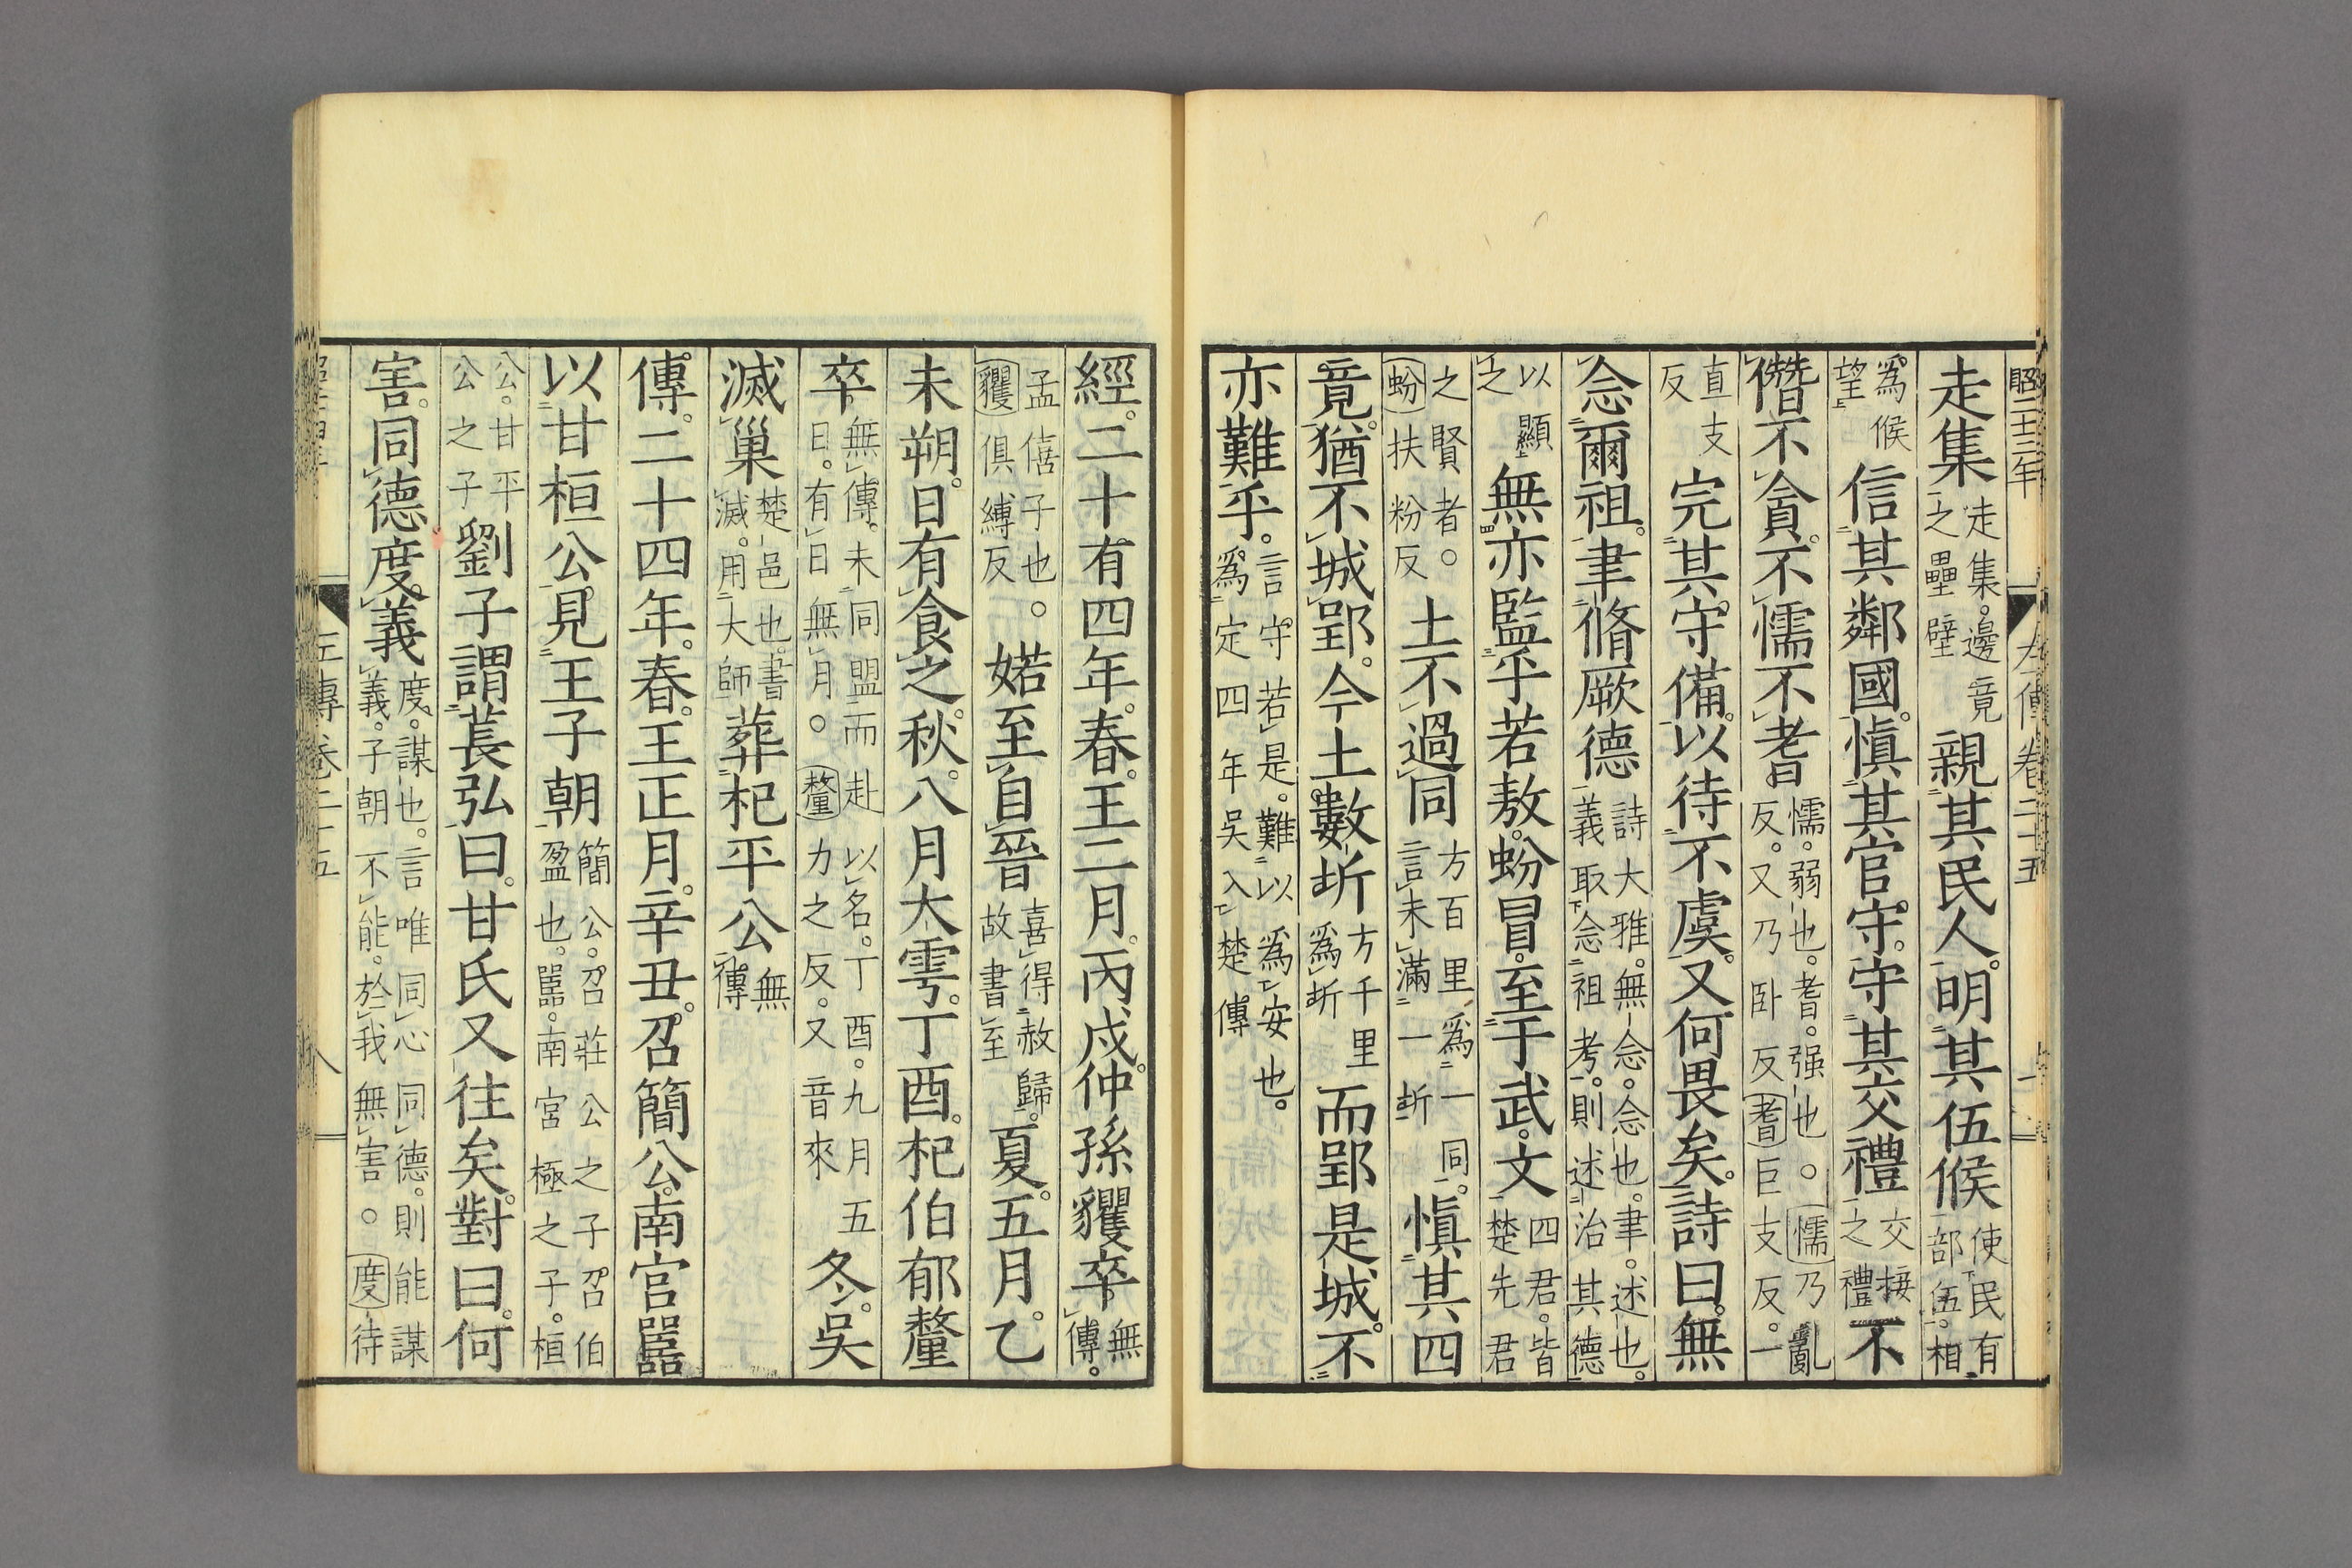 昭二十三年 左傳卷二十五
走集走集。邊竟之壘壁親其民人。明其伍候使民有部伍。相
爲候望信其鄰國。愼其官守。守其交禮交接之禮不
僭不貪。不懦不耆懦。弱也。耆。强也。懦乃亂反。又乃臥反耆巨支反。一
直支反完其守備。以待不虞。又何畏矣。詩曰。無
念爾祖。聿脩厥德詩大雅。無念。念也。聿。述也。義取念祖考。則述治其德
以顯之無亦監乎若敖。蚡冒。至于武。文四君。皆楚先君
之賢者。蚡扶粉反土不過同方百里爲一同。言未滿一圻愼其四
竟。猶不城郢。今土數圻方千里爲圻而郢是城。不
亦難乎。言守若是。難以爲安也。爲定四年吳入楚傳
經。二十有四年。春。王二月。丙戌。仲孫貜卒無傳。
孟僖子也。貜俱縛反婼至自晉喜得赦歸。故書至夏。五月。乙
未朔。日有食之。秋。八月大雩。丁酉。杞伯郁釐
卒無傳。未同盟而赴以名。丁酉。九月五日。有日無月。釐力之反。又音來冬。吳
滅巢楚邑也。書滅。用大師葬杞平公無傳
傳。二十四年。春。王正月。辛丑。召簡公。南宮嚚
以甘桓公。見王子朝簡公。召莊公之子召伯盈也。嚚。南宮極之子。桓
公。甘平公之子劉子謂萇弘曰。甘氏又往矣。對曰。何
害。同德度義度。謀也。言唯同心同德。則能謀義。子朝不能。於我無害。度待
左傳卷二十五 八